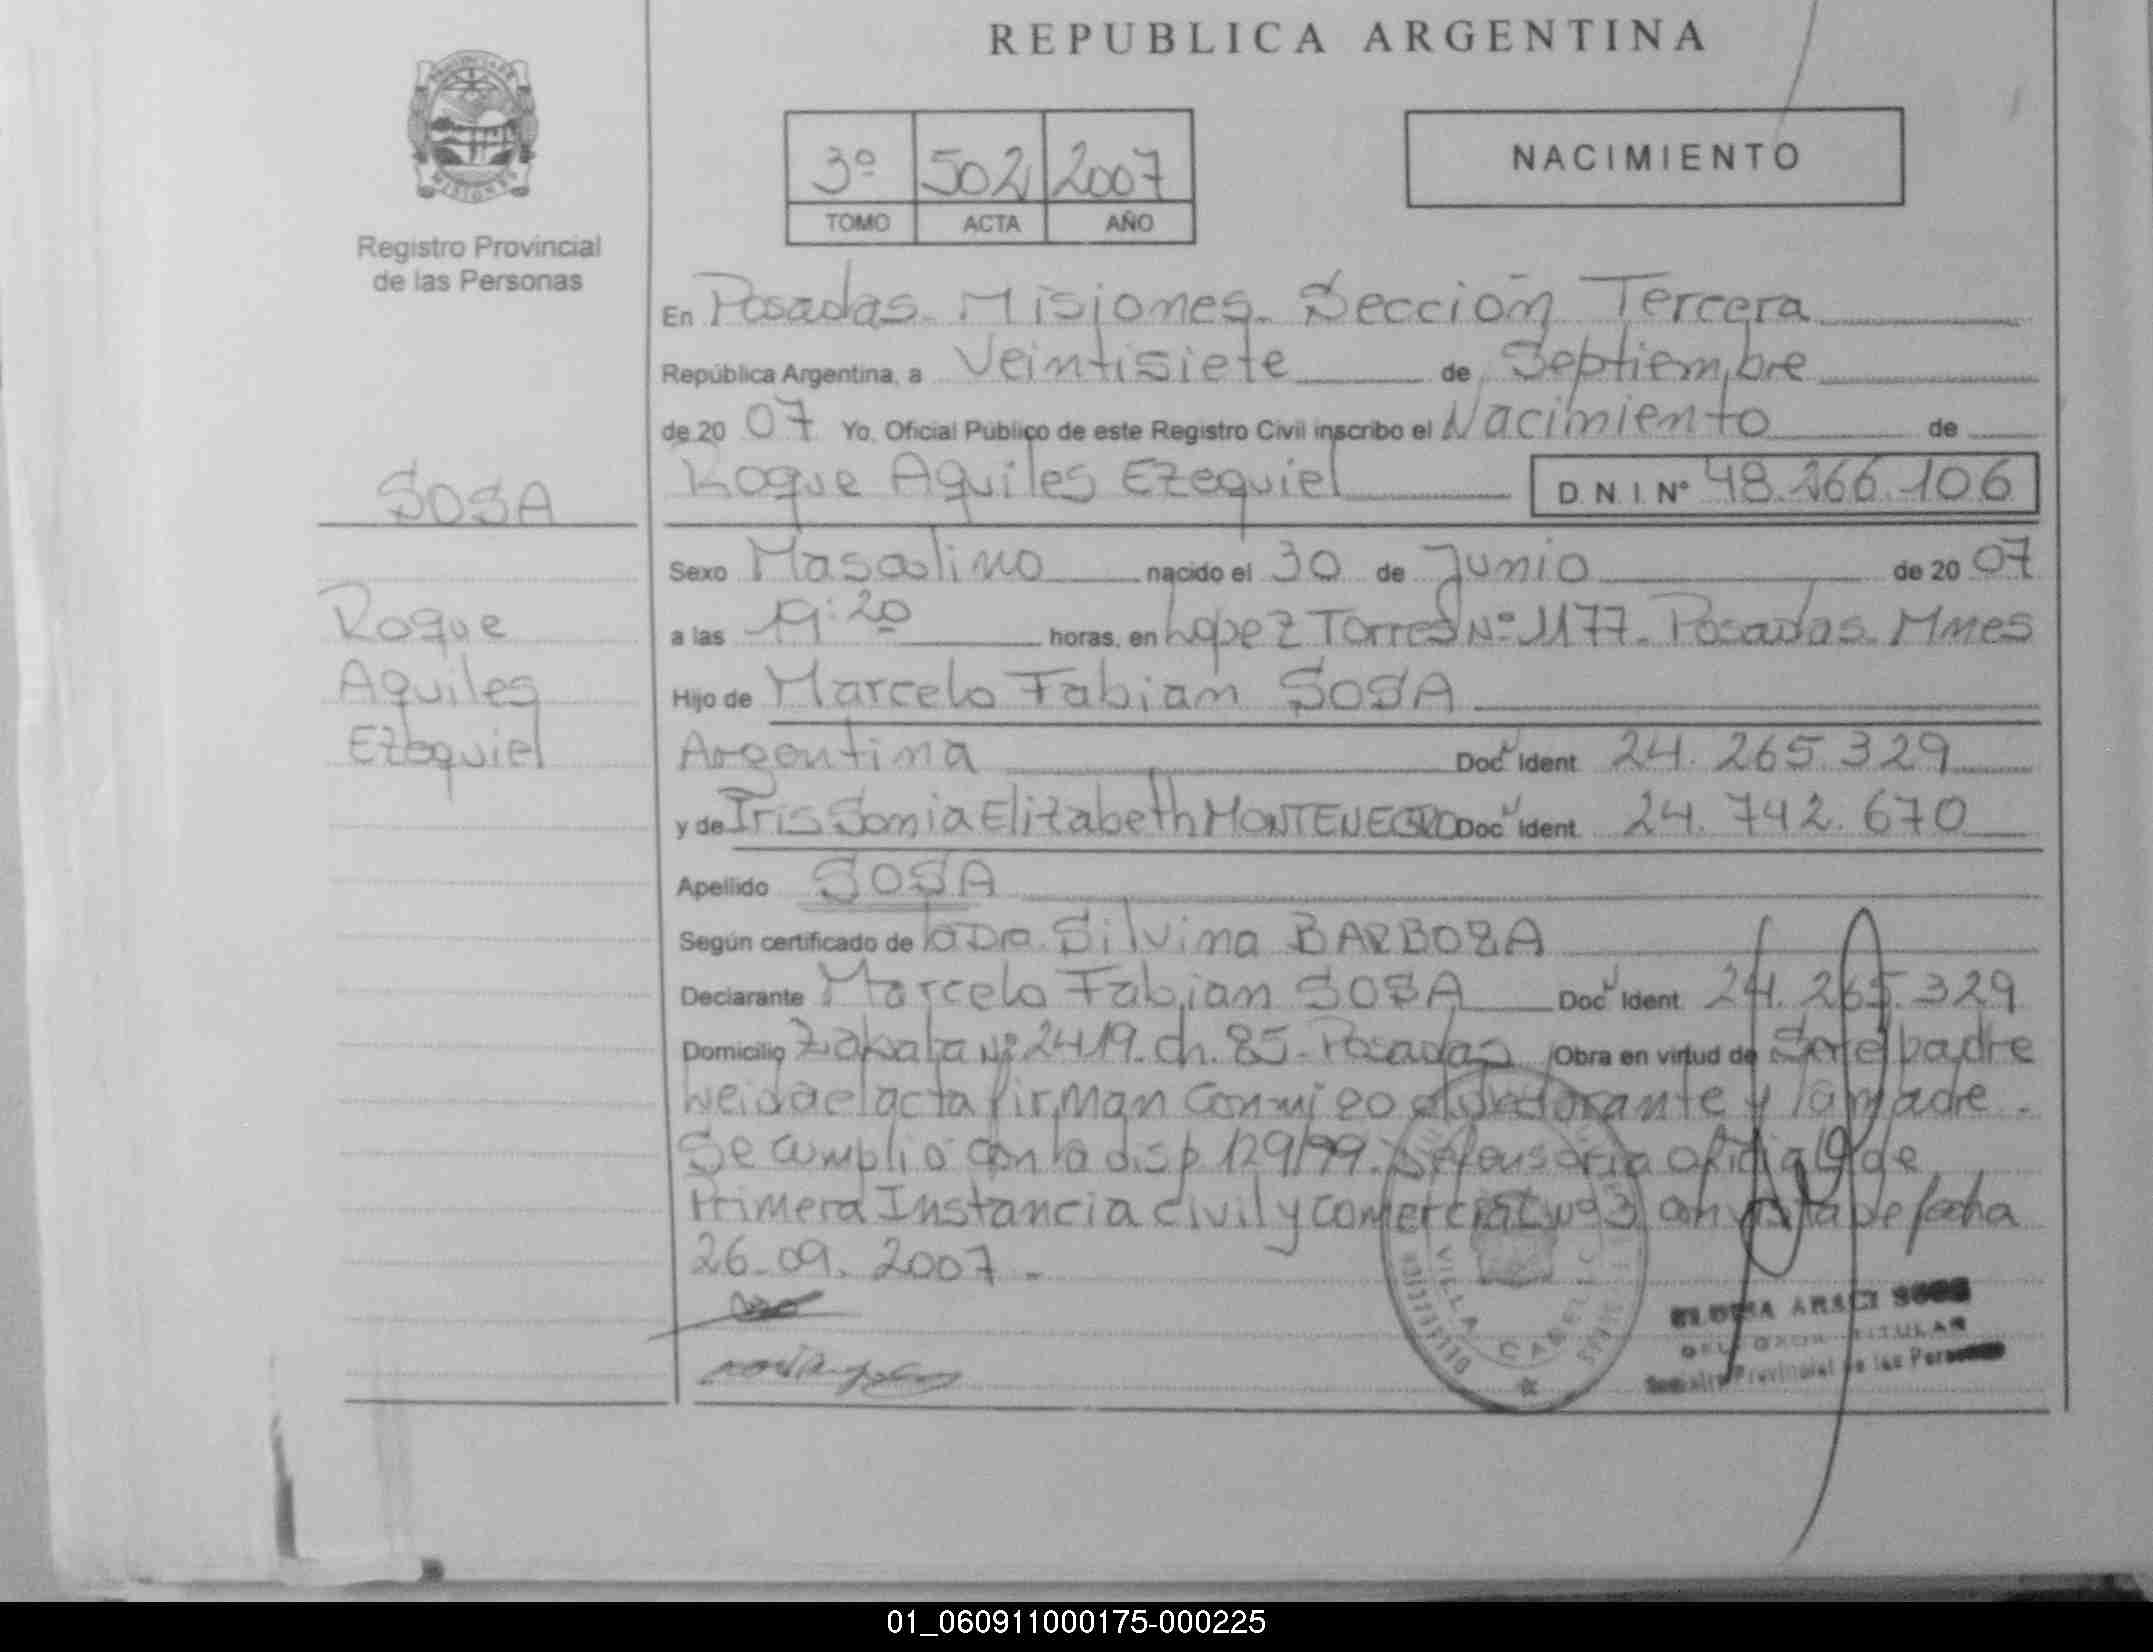 REPUBLICA ARGENTINA
PROVINCIA DE
MISIONES
Registro Provincial
de las Personas
3º 502 2007
TOMO ACTA AÑO
NACIMIENTO
En Posadas. Misiones. Sección Tercera
República Argentina, a Veintisiete de Septiembre
de 20 07 Yo, Oficial Público de este Registro Civil inscribo el Nacimiento de
Roque Aquiles Ezequiel D.N.I. Nº 48.266.106
SOSA
Roque
Aquiles
Ezequiel
Sexo Masculino nacido el 30 de Junio de 20 07
a las 19:20 horas, en Lopez Torres Nº 1177. Posadas. Mnes
Hijo de Marcelo Fabian SOSA
Argentina Doc Ident 24.265.329
y de Iris Sonia Elizabeth MONTENEGRO Doc Ident 24.742.670
Apellido SOSA
Según certificado de la Dra. Silvina BARBOZA
Declarante Marcelo Fabian SOSA Doc Ident 24.265.329
Domicilio Nº 2419. ch. 85. Posadas Obra en virtud de Ser el padre
Leida el acta firman conmigo el declarante y la madre.
Se cumplio con la disp 129/99. Defensoria Oficial de
Primera Instancia Civil y Comercial Nº 3 con fecha
26.09.2007.-
VILLA CABELLO
TITULAR
Provincial de las
01_060911000175-000225